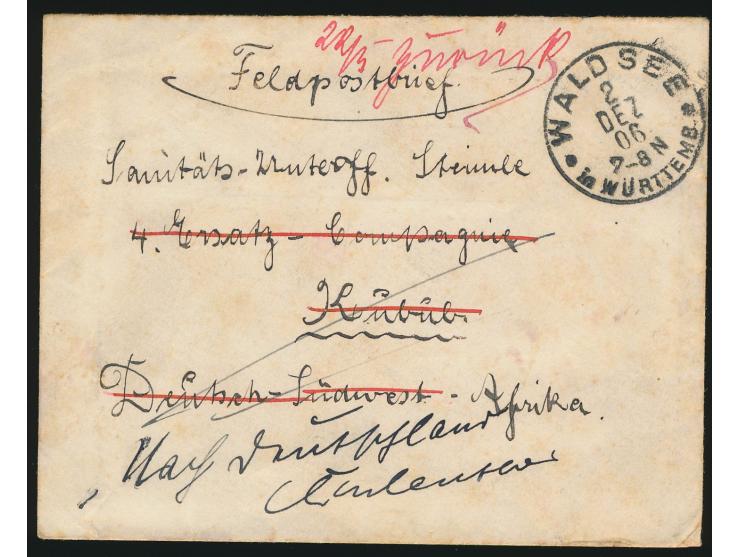 zurück
Feldpostbrief.
WALDSEE
2
DEZ
06
7-8 N
in WÜRTTEMB.
Sanitäts-Unteroff. Steimle
4. Ersatz-Compagnie
Kubub.
Deutsch-Südwest-Afrika.
Nach Deutschland